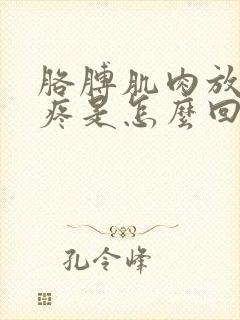 胳膊肌肉放
疼是怎麼回
孔令峰